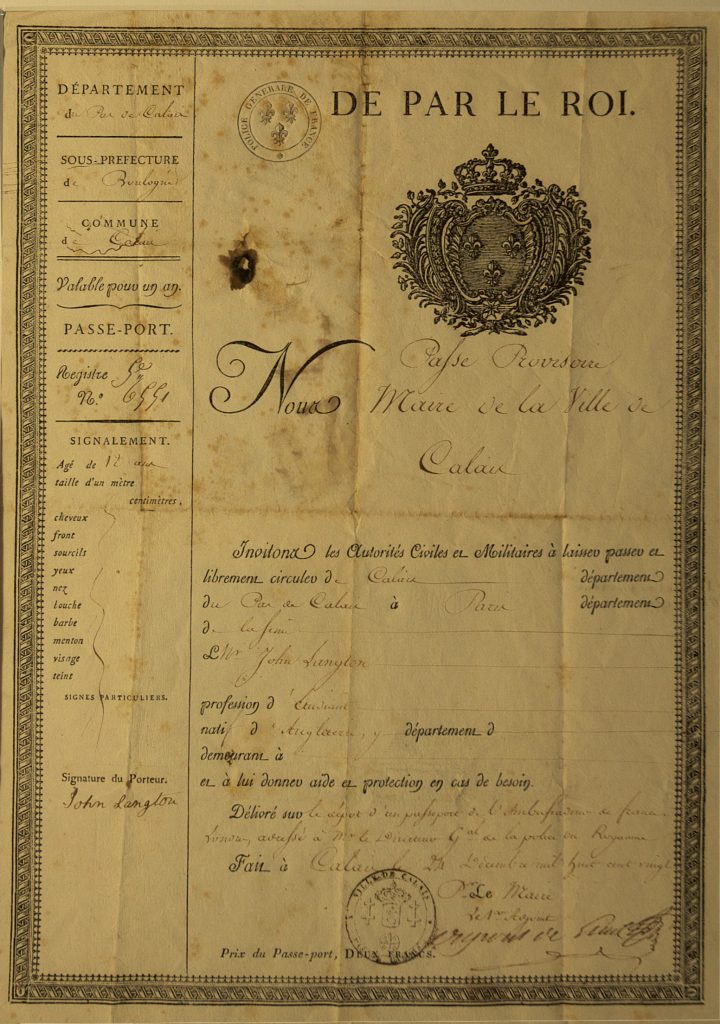 DÉPARTEMENT
du Pas de Calais
SOUS-PREFECTURE
de Boulogne
COMMUNE
de Calais
Valable pour un an.
PASSE-PORT.
Registre
N.º 6551
SIGNALEMENT.
Agé de 12 ans
taille d'un mètre
centimètres.
cheveux
front
sourcils
yeux
nez
bouche
barbe
menton
visage
teint
SIGNES PARTICULIERS.
Signature du Porteur.
John Langton
POLICE GÉNÉRALE DE FRANCE
DE PAR LE ROI.
Passe Provisoire
Nous Maire de la Ville de
Calais
Invitons les Autorités Civiles et Militaires à laisser passer et
librement circuler de Calais département
du Pas de Calais à Paris département
de la Seine
L Mr John Langton
profession d'Etudiant
natif d'Angleterre, département d
demeurant à
et à lui donner aide et protection en cas de besoin.
Délivré sur le dépôt d'un passeport de l'Ambassadeur de france
Londres, adressé à Mr le Directeur Gal de la police du Royaume
Fait à Calais le 24 Décembre mil huit cent vingt
Pr Le Maire
Le 1er Adjoint
VILLE DE CALAIS
Prix du Passe-port, DEUX FRANCS.